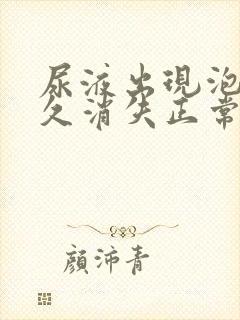 尿液出現泡
久消失正常
顏沛青